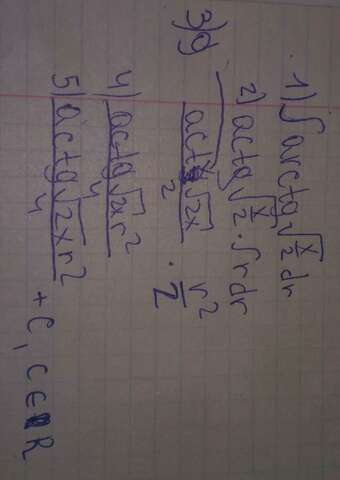 1) ∫ arctg √x/2 dr
2) actg √x/2 · ∫ r dr
3) g actg √2x / 2 · r² / 2
4) actg √2x r² / 4
5) actg √2x r² / 4 + C, C ∈ R